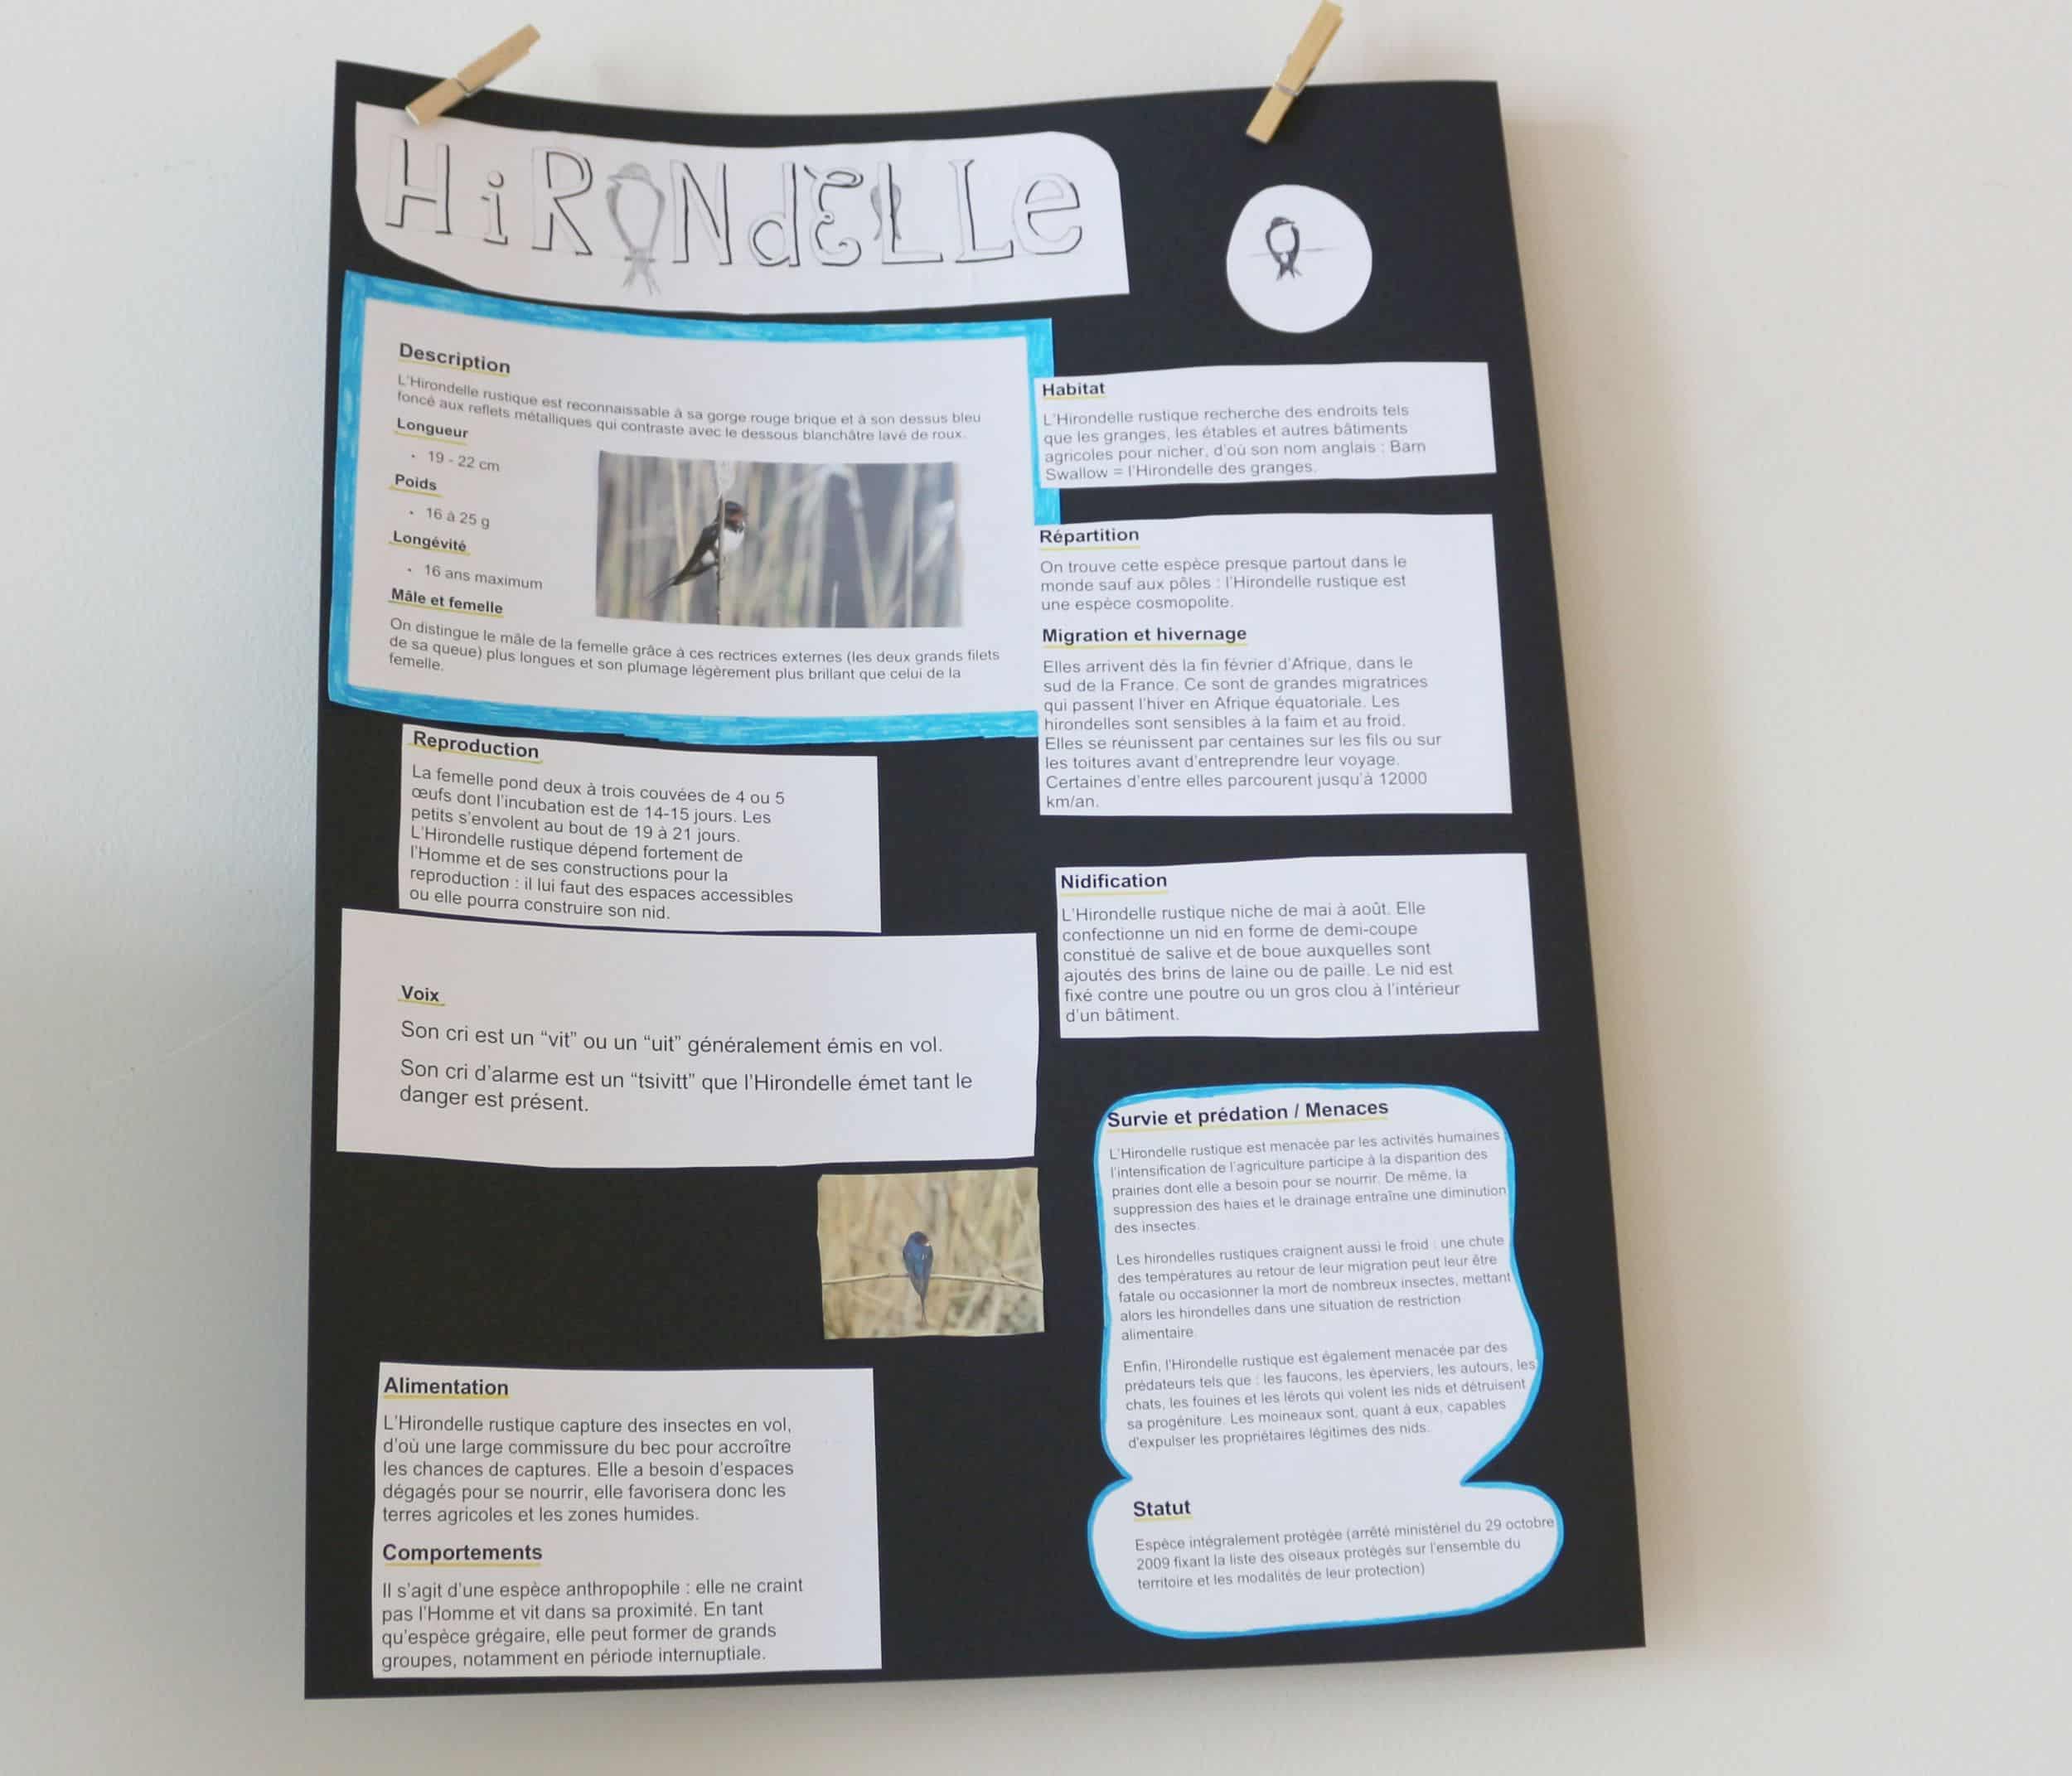 HiRONdELLe
Description
L'Hirondelle rustique est reconnaissable à sa gorge rouge brique et à son dessus bleu
foncé aux reflets métalliques qui contraste avec le dessous blanchâtre lavé de roux.
Longueur
• 19 - 22 cm
Poids
• 16 à 25 g
Longévité
• 16 ans maximum
Mâle et femelle
On distingue le mâle de la femelle grâce à ces rectrices externes (les deux grands filets
de sa queue) plus longues et son plumage légèrement plus brillant que celui de la
femelle.
Reproduction
La femelle pond deux à trois couvées de 4 ou 5
œufs dont l'incubation est de 14-15 jours. Les
petits s'envolent au bout de 19 à 21 jours.
L'Hirondelle rustique dépend fortement de
l'Homme et de ses constructions pour la
reproduction : il lui faut des espaces accessibles
ou elle pourra construire son nid.
Voix
Son cri est un “vit” ou un “uit” généralement émis en vol.
Son cri d'alarme est un “tsivitt” que l'Hirondelle émet tant le
danger est présent.
Alimentation
L'Hirondelle rustique capture des insectes en vol,
d'où une large commissure du bec pour accroître
les chances de captures. Elle a besoin d'espaces
dégagés pour se nourrir, elle favorisera donc les
terres agricoles et les zones humides.
Comportements
Il s'agit d'une espèce anthropophile : elle ne craint
pas l'Homme et vit dans sa proximité. En tant
qu'espèce grégaire, elle peut former de grands
groupes, notamment en période internuptiale.
Habitat
L'Hirondelle rustique recherche des endroits tels
que les granges, les étables et autres bâtiments
agricoles pour nicher, d'où son nom anglais : Barn
Swallow = l'Hirondelle des granges.
Répartition
On trouve cette espèce presque partout dans le
monde sauf aux pôles : l'Hirondelle rustique est
une espèce cosmopolite.
Migration et hivernage
Elles arrivent dès la fin février d'Afrique, dans le
sud de la France. Ce sont de grandes migratrices
qui passent l'hiver en Afrique équatoriale. Les
hirondelles sont sensibles à la faim et au froid.
Elles se réunissent par centaines sur les fils ou sur
les toitures avant d'entreprendre leur voyage.
Certaines d'entre elles parcourent jusqu'à 12000
km/an.
Nidification
L'Hirondelle rustique niche de mai à août. Elle
confectionne un nid en forme de demi-coupe
constitué de salive et de boue auxquelles sont
ajoutés des brins de laine ou de paille. Le nid est
fixé contre une poutre ou un gros clou à l'intérieur
d'un bâtiment.
Survie et prédation / Menaces
L'Hirondelle rustique est menacée par les activités humaines
l'intensification de l'agriculture participe à la disparition des
prairies dont elle a besoin pour se nourrir. De même, la
suppression des haies et le drainage entraîne une diminution
des insectes.
Les hirondelles rustiques craignent aussi le froid : une chute
des températures au retour de leur migration peut leur être
fatale ou occasionner la mort de nombreux insectes, mettant
alors les hirondelles dans une situation de restriction
alimentaire.
Enfin, l'Hirondelle rustique est également menacée par des
prédateurs tels que : les faucons, les éperviers, les autours, les
chats, les fouines et les lérots qui volent les nids et détruisent
sa progéniture. Les moineaux sont, quant à eux, capables
d'expulser les propriétaires légitimes des nids.
Statut
Espèce intégralement protégée (arrêté ministériel du 29 octobre
2009 fixant la liste des oiseaux protégés sur l'ensemble du
territoire et les modalités de leur protection)